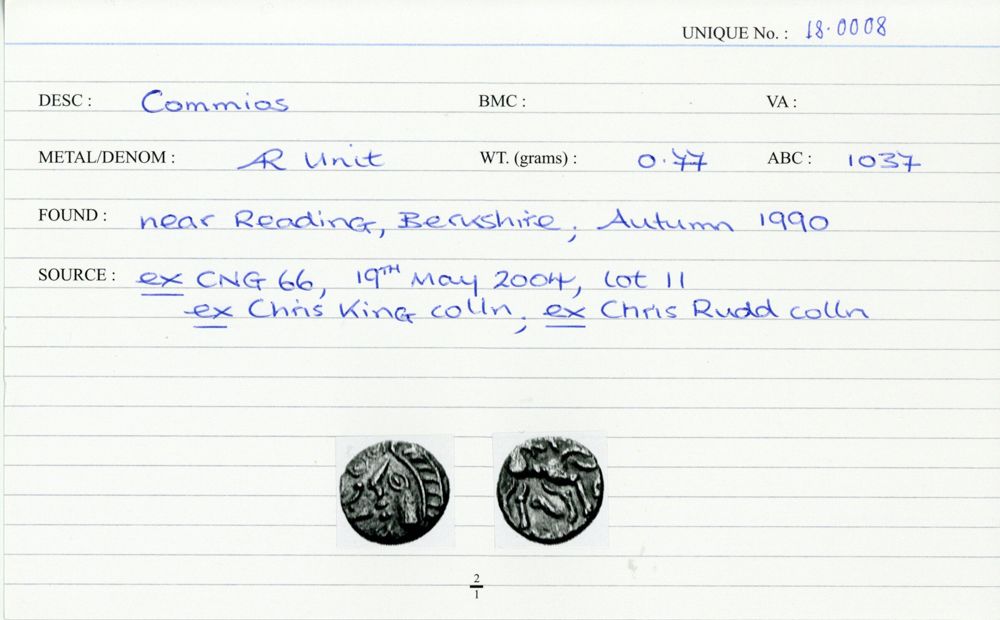 UNIQUE No. : 18.0008
DESC : Commios BMC : VA :
METAL/DENOM : AR Unit WT. (grams) : 0.77 ABC : 1037
FOUND : near Reading, Berkshire; Autumn 1990
SOURCE : ex CNG 66, 19TH May 2004, lot 11
ex Chris King colln; ex Chris Rudd colln
2
1